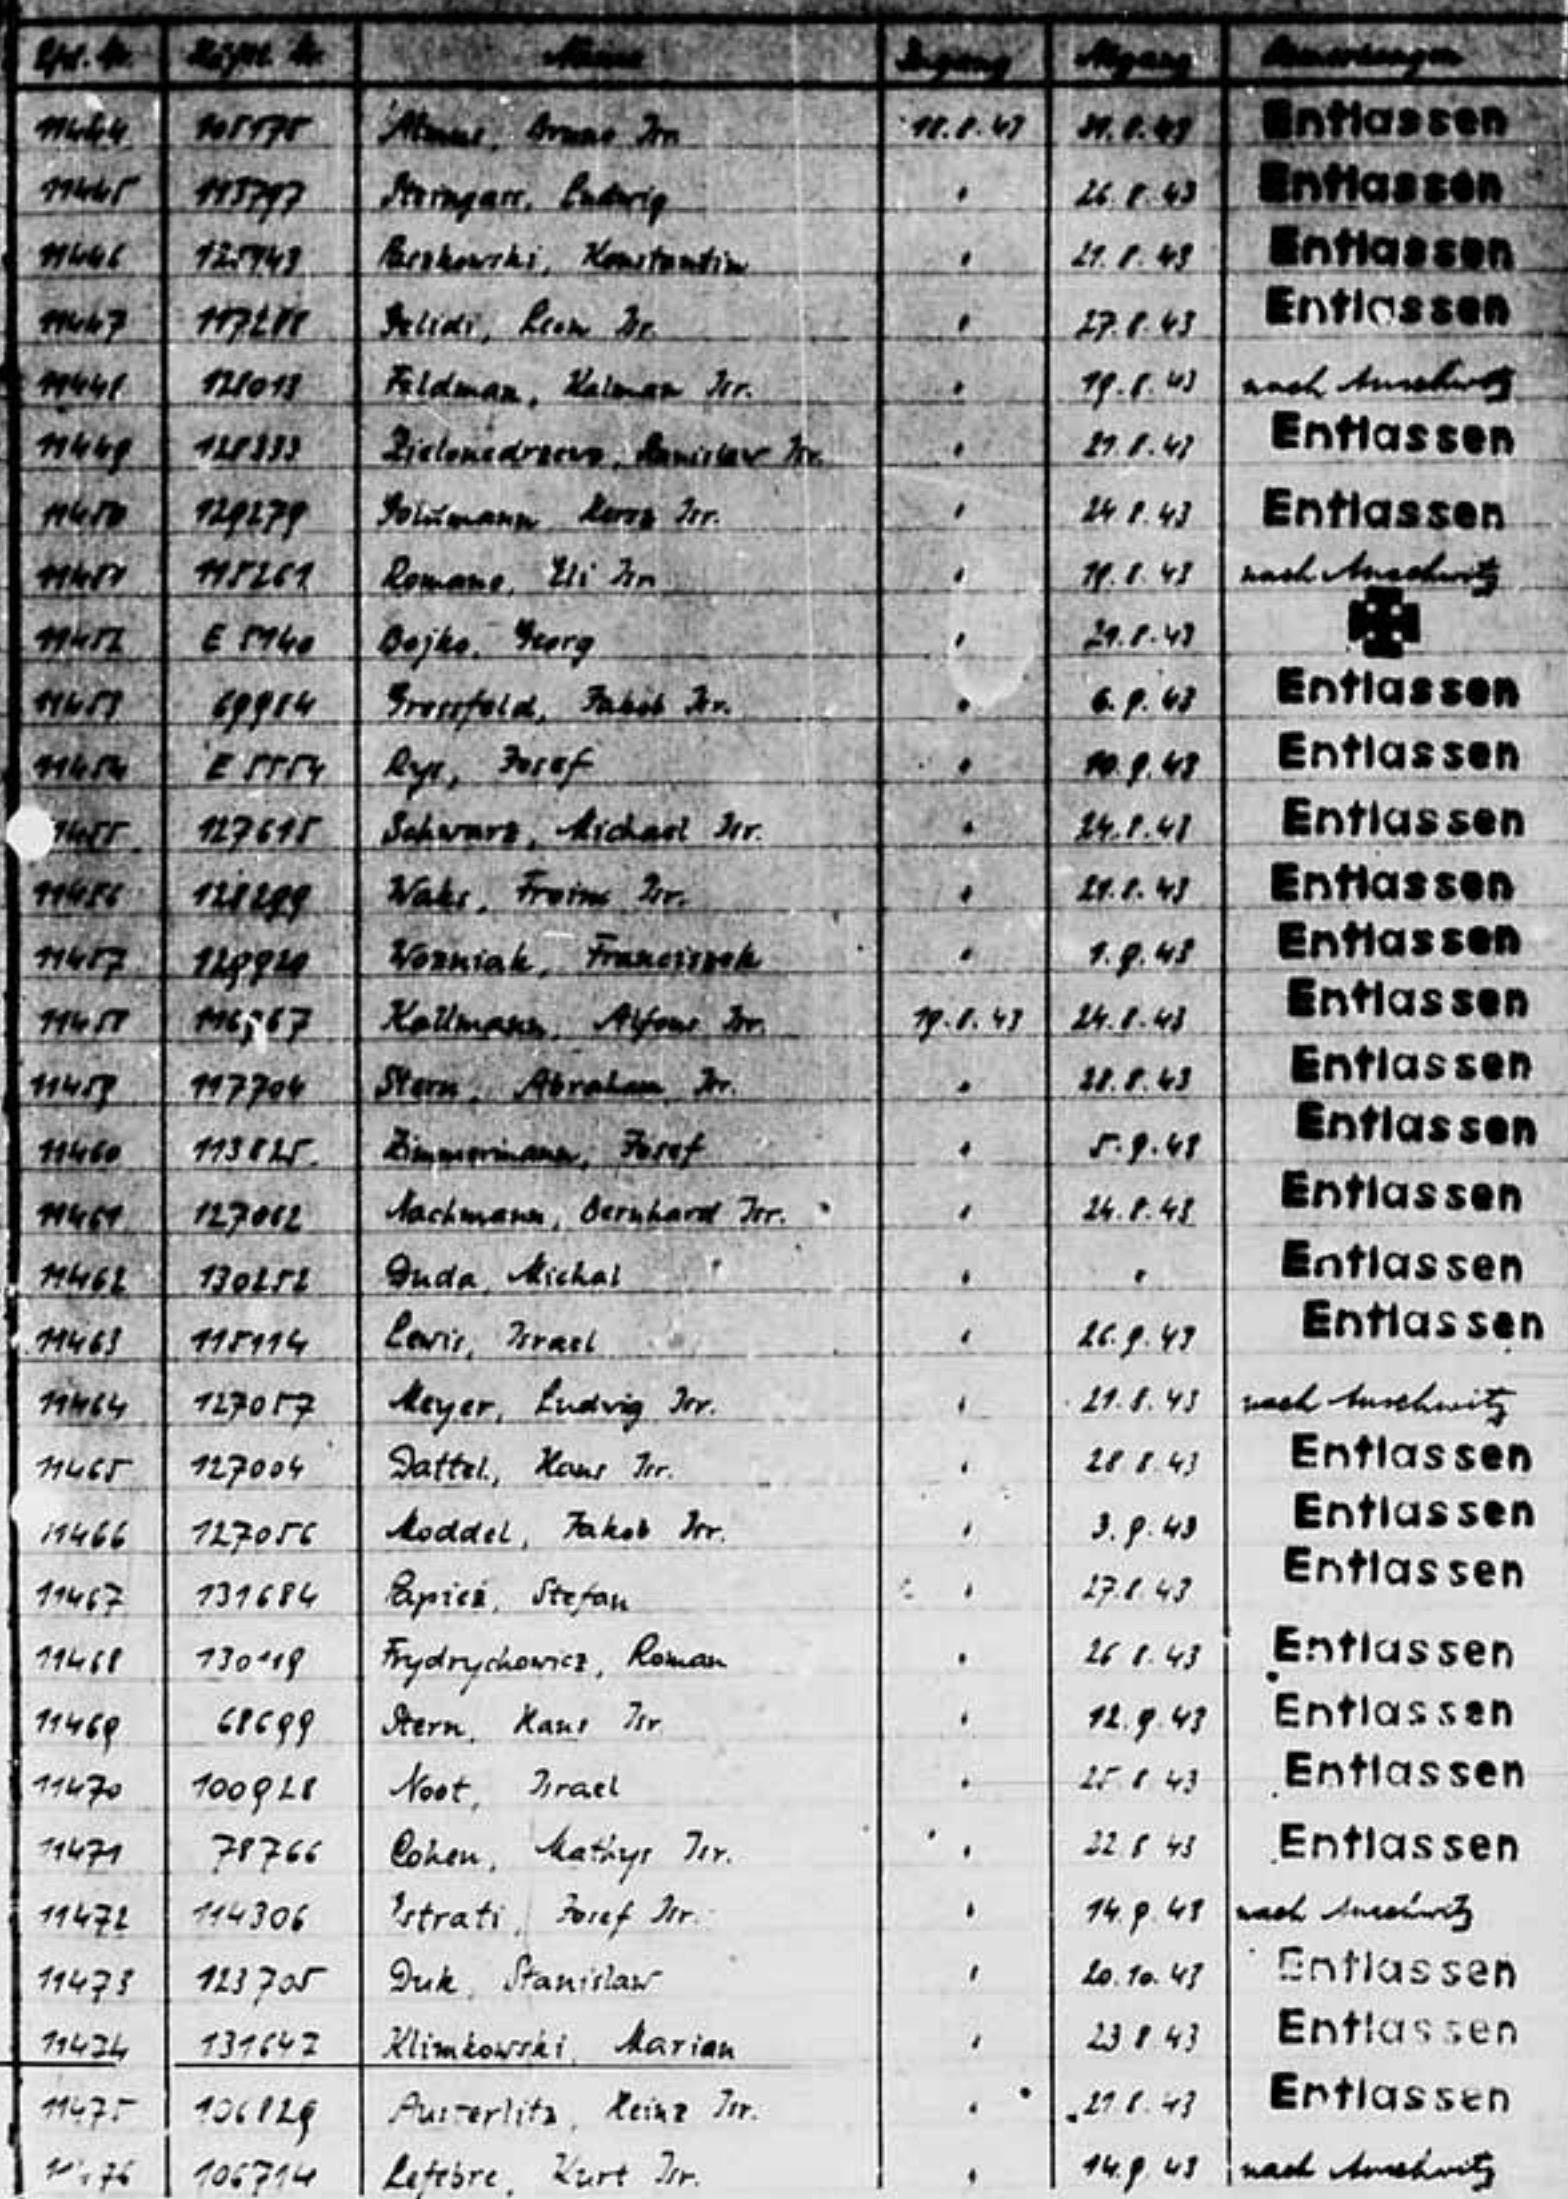 Lfd. Nr. Häftl. Nr. Name Zugang Abgang Bemerkungen
11444 105175 Bruno Isr. 18.8.43 Entlassen
11445 115797 Ludwig " 26.8.43 Entlassen
11446 125943 Paszkowski, Konstantin " 21.8.43 Entlassen
11447 117288 Leon Isr. " 27.8.43 Entlassen
11448 128013 Feldman, Kalman Isr. " 19.8.43 nach Auschwitz
11449 128333 Stanislaw Isr. " 21.8.43 Entlassen
11450 129279 Isr. " 24.8.43 Entlassen
11451 115261 Romano, Eli Isr. " 19.8.43 nach Auschwitz
11452 E 8140 Bojko, Georg " 21.8.43
11453 69984 Grossfeld, Jakob Isr. " 6.9.43 Entlassen
11454 Rys, Josef " 10.9.43 Entlassen
11455 127615 Schwarz, Michael Isr. " 24.8.43 Entlassen
11456 128299 Waks, Froim Isr. " 21.8.43 Entlassen
11457 129920 Wozniak, Franciszek " 1.9.43 Entlassen
11458 Kallmann, Alfons Isr. 19.8.43 24.8.43 Entlassen
11459 117704 Stern, Abraham Isr. " 28.8.43 Entlassen
11460 113825 Zimmermann, Josef " 5.9.43 Entlassen
11461 127062 Nachmann, Bernhard Isr. " 24.8.43 Entlassen
11462 130252 Duda, Michal " " Entlassen
11463 115114 Lewis, Israel " 26.9.43 Entlassen
11464 127057 Meyer, Ludwig Isr. " 21.8.43 nach Auschwitz
11465 127004 Dattel, Hans Isr. " 28.8.43 Entlassen
11466 127056 Moddel, Jakob Isr. " 3.9.43 Entlassen
11467 131684 Papież, Stefan " 27.8.43 Entlassen
11468 130119 Frydrychowicz, Roman " 26.8.43 Entlassen
11469 68699 Stern, Hans Isr. " 12.9.43 Entlassen
11470 100928 Noot, Israel " 25.8.43 Entlassen
11471 78766 Cohen, Mathys Isr. " 22.8.43 Entlassen
11472 114306 Istrati, Josef Isr. " 14.9.43 nach Auschwitz
11473 123705 Duk, Stanislaw " 20.10.43 Entlassen
11474 131642 Klimkowski, Marian " 23.8.43 Entlassen
11475 106829 Austerlitz, Heinz Isr. " 21.8.43 Entlassen
11476 106714 Lefebre, Kurt Isr. " 14.9.43 nach Auschwitz